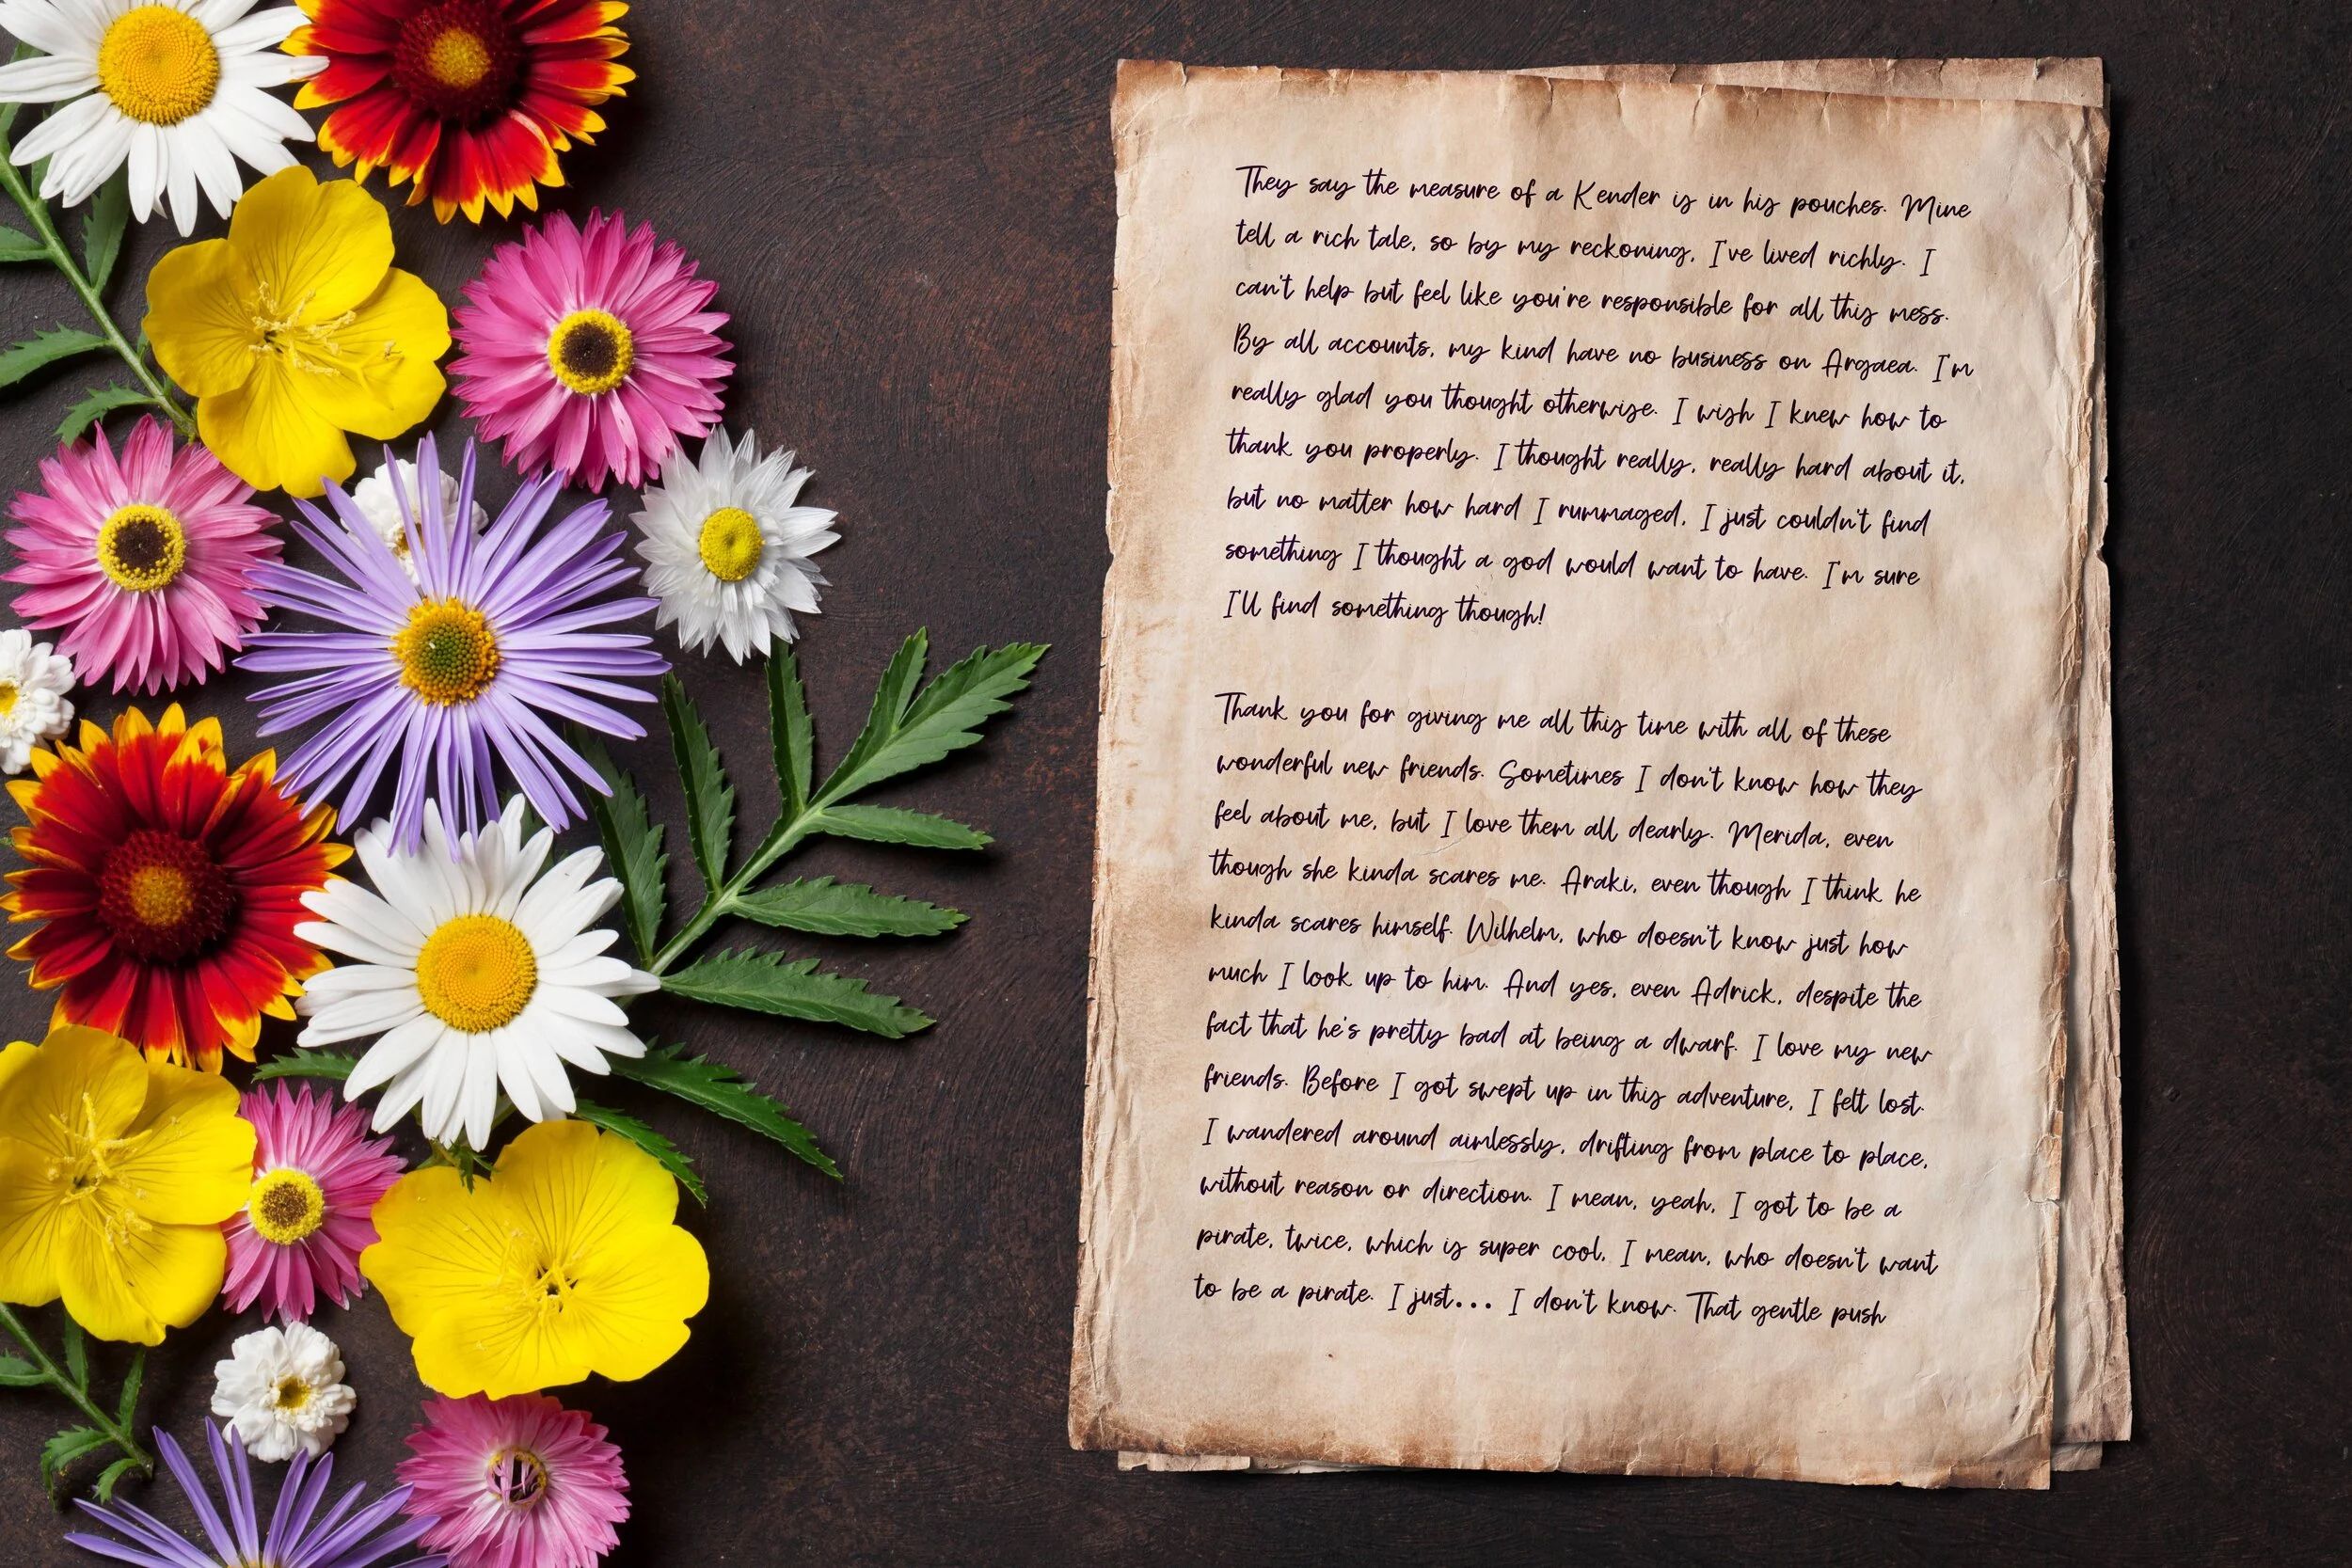 They say the measure of a Kender is in his pouches. Mine
tell a rich tale, so by my reckoning, I've lived richly. I
can't help but feel like you're responsible for all this mess.
By all accounts, my kind have no business on Argaea. I'm
really glad you thought otherwise. I wish I knew how to
thank you properly. I thought really, really hard about it,
but no matter how hard I rummaged, I just couldn't find
something I thought a god would want to have. I'm sure
I'll find something though!
Thank you for giving me all this time with all of these
wonderful new friends. Sometimes I don't know how they
feel about me, but I love them all dearly. Merida, even
though she kinda scares me. Araki, even though I think he
kinda scares himself. Wilhelm, who doesn't know just how
much I look up to him. And yes, even Adrick, despite the
fact that he's pretty bad at being a dwarf. I love my new
friends. Before I got swept up in this adventure, I felt lost.
I wandered around aimlessly, drifting from place to place,
without reason or direction. I mean, yeah, I got to be a
pirate, twice, which is super cool, I mean, who doesn't want
to be a pirate. I just... I don't know. That gentle push